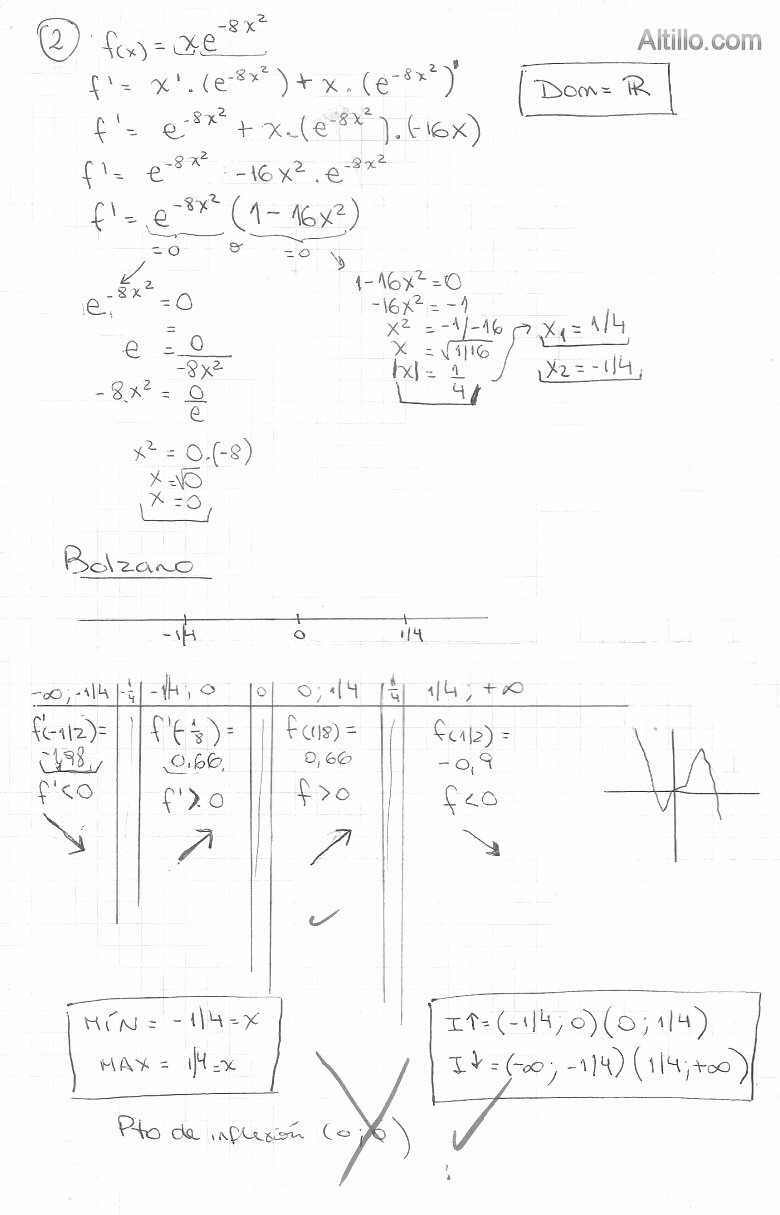 Altillo.com
2 f(x) = xe^-8x²
f' = x' . (e^-8x²) + x . (e^-8x²)'
Dom = ℝ
f' = e^-8x² + x . (e^-8x²) . (-16x)
f' = e^-8x² - 16x² . e^-8x²
f' = e^-8x² (1 - 16x²)
=0 o =0
e^-8x² = 0
=
e = 0/-8x²
-8x² = 0/e
x² = 0.(-8)
x = √0
x = 0
1-16x² = 0
-16x² = -1
x² = -1/-16
x = √1/16
|x| = 1/4
x1 = 1/4
x2 = -1/4
Bolzano
-1/4 0 1/4
-∞; -1/4 -1/4 -1/4; 0 0 0; 1/4 1/4 1/4; +∞
f'(-1/2) = f'(-1/8) = f(1/8) = f(1/2) =
-1,98 0,66 0,66 -0,9
f' < 0 f' > 0 f > 0 f < 0
MÍN = -1/4 = x
MAX = 1/4 = x
I↑ = (-1/4; 0) (0; 1/4)
I↓ = (-∞; -1/4) (1/4; +∞)
Pto de inflexión (0; 0)